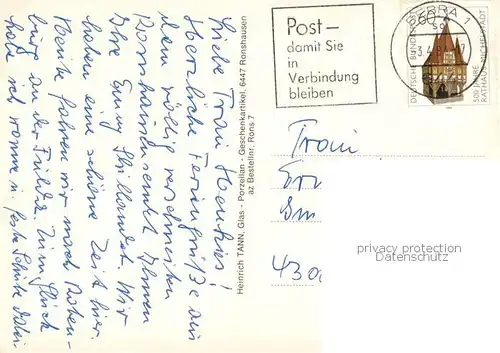 Liebe Frau Hentres!
Herzliche Feriengrüße aus
dem völlig verschneiten
Ronshausen sendet Ihnen
Ihre Emmy Wir
haben eine schöne Zeit hier.
Heute fahren wir nach Roten-
burg an der Fulda. Zum Glück
habe ich warme u. feste Schuhe dabei
Heinrich TANN, Glas - Porzellan - Geschenkartikel, 6447 Ronshausen
az Bestellnr. Rons 7
Post—
damit Sie
in
Verbindung
bleiben
BEBRA 1
60
DEUTSCHE BUNDESPOST
500 JAHRE
RATHAUS MICHELSTADT
Frau
430
privacy protection
Datenschutz